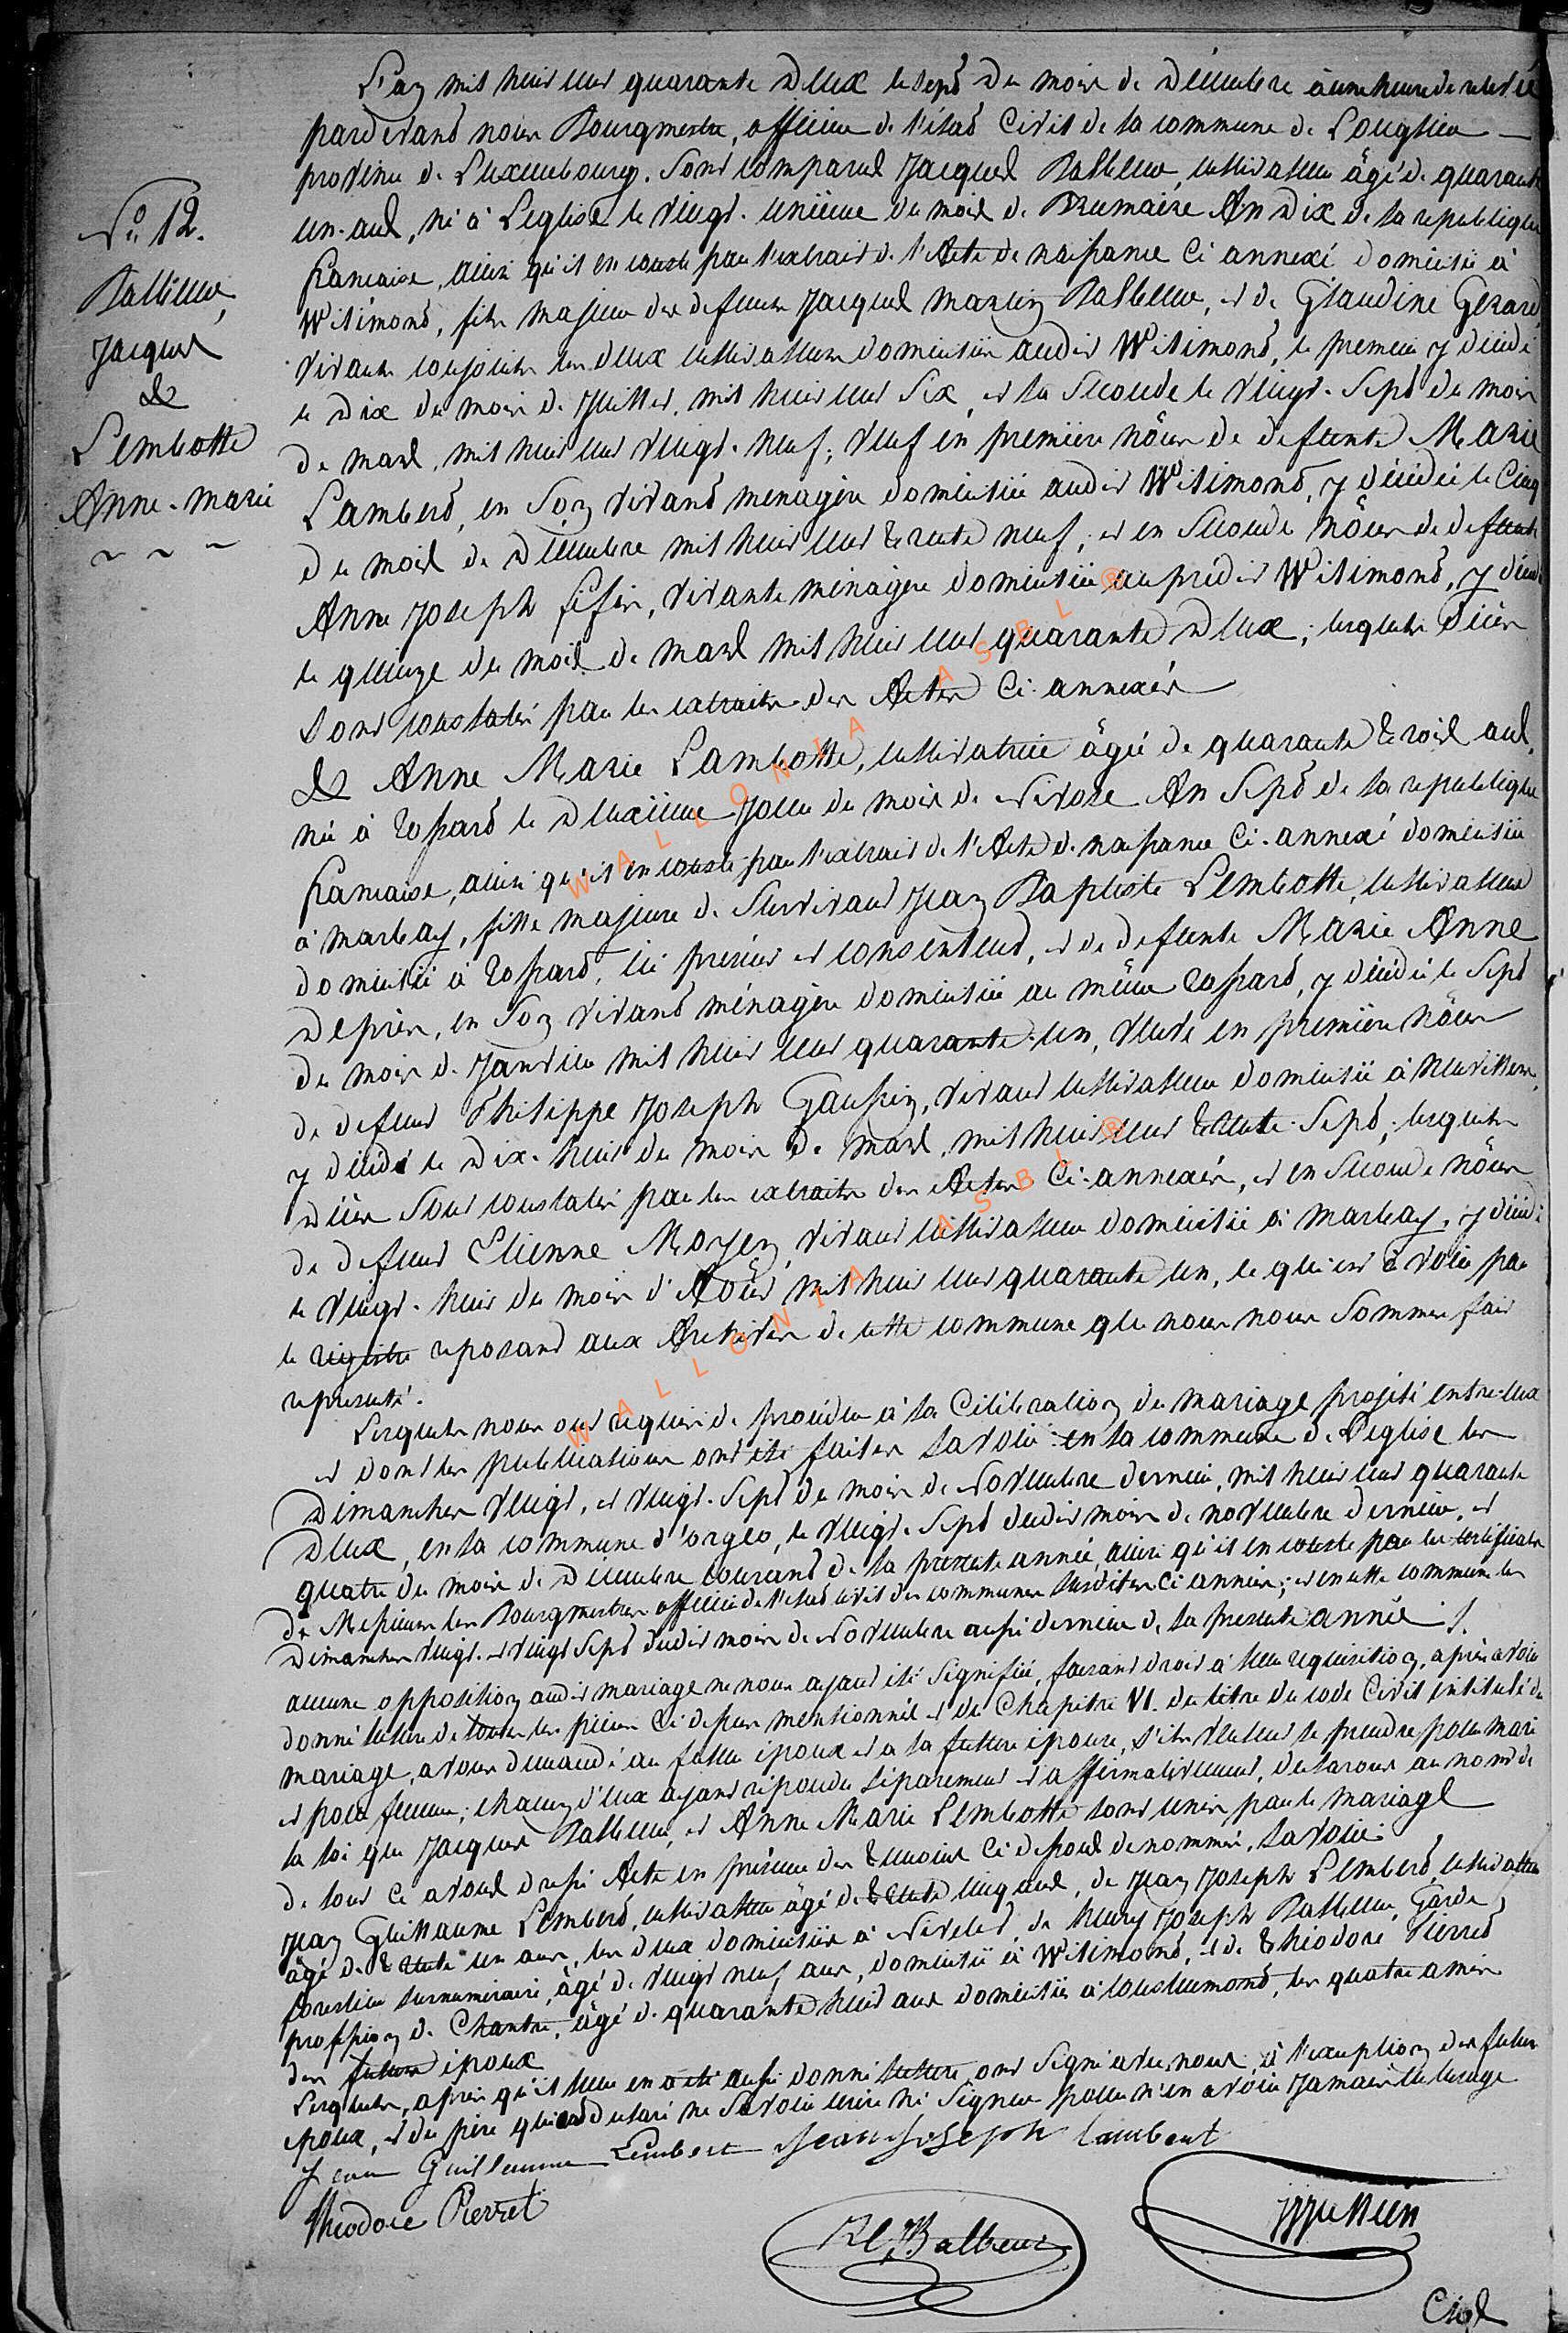 N.° 12.
Balleux,
Jacques
&
Lembotte
Anne-marie
L'an mil huit cent quarante Deux le sept Du mois de Décembre à une heure de relevée
pardevant nous Bourgmestre, officier de l'état Civil de la commune de Longlier
province de Luxembourg. Sont comparus Jacques Balleux, cultivateur âgé de quarante
un-ans, né à Leglise le vingt-unième du mois de Brumaire An Dix de la republique
francaise, ainsi qu'il en conste par l'extrait de l'Acte de naissance Ci annexé domicilié à
Witimont, fils majeur des défunts Jacques martin Balleux, et de Glaudine Gerard,
vivants conjoints les deux cultivateurs domiciliés audit Witimont, le premier y décédé
le Dix du mois de Juillet, mil huit cent Six, et la Seconde le vingt-Sept du mois
de mars, mil huit cent vingt-neuf; veuf en premières nôces de défunte Marie
Lambert, en Son vivant menagère domiciliée audit Witimont, y décédée le Cinq
du mois de Décembre mil huit cent trente neuf; et en Seconde nôces de défunte
Anne Joseph, vivante ménagère domiciliée au prédit Witimont, y décédée
le quinze du mois de mars mil huit cent quarante Deux; lesquels Décès
Sont constatés par les extraits des Actes Ci-annexés
& Anne Marie Lambotte, cultivatrice âgée de quarante trois ans,
née à Rossart le Deuxième Jour du mois de Nivose An Sept de la republique
francaise, ainsi qu'il en conste par l'extrait de l'Acte de naissance Ci-annexé domiciliée
à marbay, fille majeure de Survivant Jean Baptiste Lembotte, cultivateur
domicilié à Rossart, ici présent et consentent, et de défunte Marie Anne
Deprés, en Son vivant ménagère domiciliée au même Rossart, y décédée le Sept
du mois de Janvier mil huit cent quarante-un, veuve en premières nôces
de défunt Philippe Joseph Gaussin, vivant cultivateur domicilié à
y décédé le Dix-huit du mois de mars, mil huit cent trente-Sept; lesquels
Décès Sont constatés par les extraits des Actes Ci-annexés, et en Seconde nôces
de défunt Etienne Moyen, vivant cultivateur domicilié à marbay, y décédé
le vingt-huit du mois d'Août mil huit cent quarante un, ce qui est à voir par
le régistre reposant aux Archives de cette commune que nous nous Sommes fait
représenté.
Lesquels nous ont requis de procéder à la Célébration du mariage projété entre-eux
et dont les publications ont été faites Savoir: en la commune de Léglise les
Dimanches vingt, et vingt-Sept du mois de Novembre dernier, mil huit cent quarante
Deux, en la commune d'orgeo, le vingt-Sept dudit mois de novembre dernier, et
quatre du mois de Décembre courant de la presente année, ainsi qu'il en conste par les certificats
de Messieurs les Bourgmestres officier de l'état civil des communes Susdites Ci-annexés; et en cette commune les
Dimanches vingt-et vingt Sept dudit mois de Novembre aussi dernier de la presente année.
aucune opposition audit mariage ne nous ayant été Signifiée, faisant droit à leur requisition, après avoir
donné lecture de toutes les pièces Ci-dessus mentionnées et du Chapitre VI. du titre du code Civil intitulé du
mariage, avons demandé au futur époux et à la future épouse, s'ils veulent se prendre pour mari
et pour femme; chacun d'eux ayant répondu séparement et affirmativement, declarons au nom de
la loi que Jacques Balleux, et Anne Marie Lembotte sont unis par le mariage
de tout ce avons dressé Acte en présence des témoins Ci-dessous denommés, Savoir:
Jean Guillaume Lembert, cultivateur âgé de trente cinq ans, de Jean Joseph Lembert, cultivateur
âgé de trente un ans, les deux domiciliés à Nivelet, de henry Joseph Balleux, Garde
forestier surnuméraire, âgé de vingt neuf ans, domicilié à Witimont, et de théodore Pierret
profession de Chantre, âgé de quarante huit ans domicilié à Coustumont, les quatre amis
des futurs époux
Lesquels, après qu'il leur en a été aussi donné lecture, ont Signé avec nous, à l'exception des futurs
époux, et du père qui ont declaré ne Savoir écrire ni Signer pour n'en avoir Jamais eu l'usage
Jean Guillaume Lembert Jean Joseph Lambert
théodore Pierret
Balleux
WALLONIA ASBL ®
WALLONIA ASBL ®